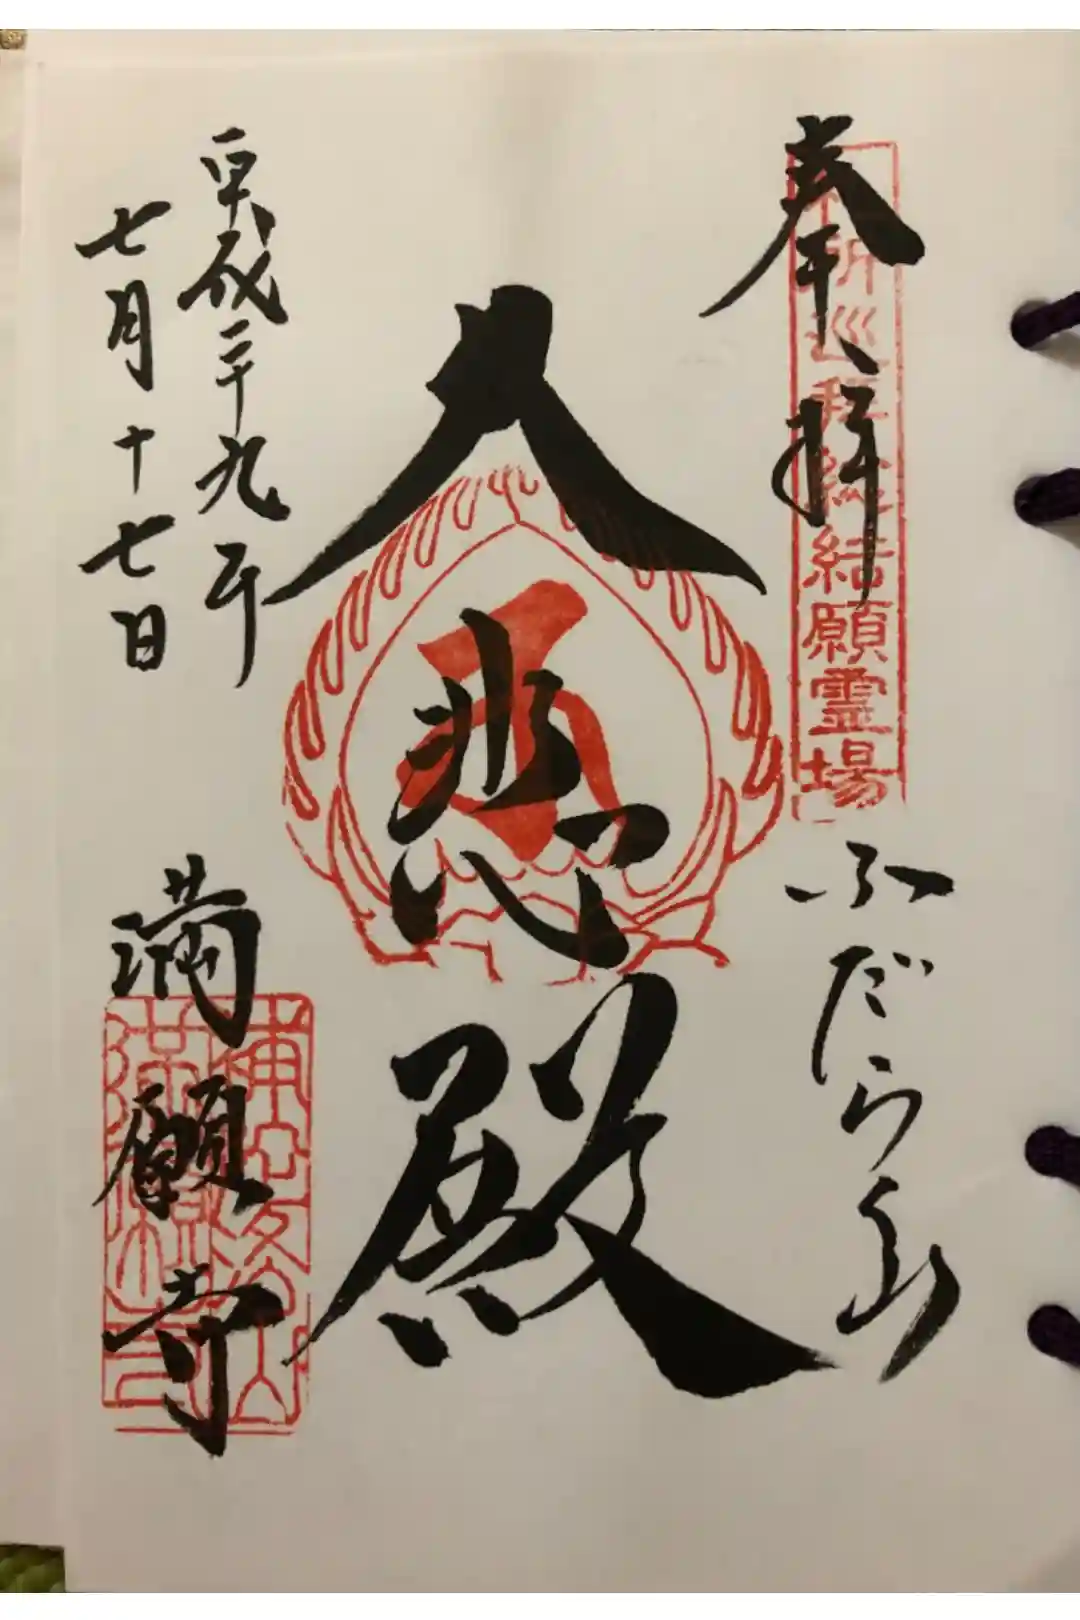 奉拝
所巡拝総結願霊場
ふだらく山
大悲殿
平成二十九年
七月十七日
満願寺